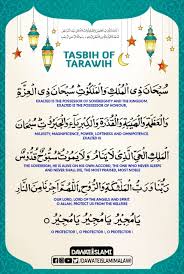 TASBIH OF
TARAWIH
سُبْحَانَ ذِی الْمُلْكِ وَالْمَلَكُوْتِ سُبْحَانَ ذِی الْعِزَّةِ
EXALTED IS THE POSSESSOR OF SOVEREIGNTY AND THE KINGDOM,
EXALTED IS THE POSSESSOR OF HONOUR,
وَالْعَظَمَةِ وَالْهَيْبَةِ وَالْقُدْرَةِ وَالْكِبْرِيَآءِ وَالْجَبَرُوْتِ سُبْحَانَ
MAJESTY, MAGNIFICENCE, POWER, LOFTINESS AND OMNIPOTENCE.
EXALTED IS
الْمَلِكِ الْحَيِّ الَّذِیْ لَا يَنَامُ وَلَا يَمُوْتُ سُبُّوْحٌ قُدُّوْسٌ
THE SOVEREIGN, HE IS ALIVE ON HIS OWN ACCORD, THE ONE WHO NEVER SLEEPS
AND NEVER SHALL DIE, THE MOST PRAISED, MOST NOBLE
رَبُّنَا وَرَبُّ الْمَلٰٓئِكَةِ وَالرُّوْحِ اَللّٰهُمَّ اَجِرْنَا مِنَ النَّارِ
OUR LORD, LORD OF THE ANGELS AND SPIRIT
O ALLAH, PROTECT US FROM THE HELLFIRE
يَا مُجِيْرُ يَا مُجِيْرُ يَا مُجِيْرُ
O PROTECTOR ! O PROTECTOR ! O PROTECTOR !
DAWATEISLAMI
/DAWATEISLAMIMALAWI